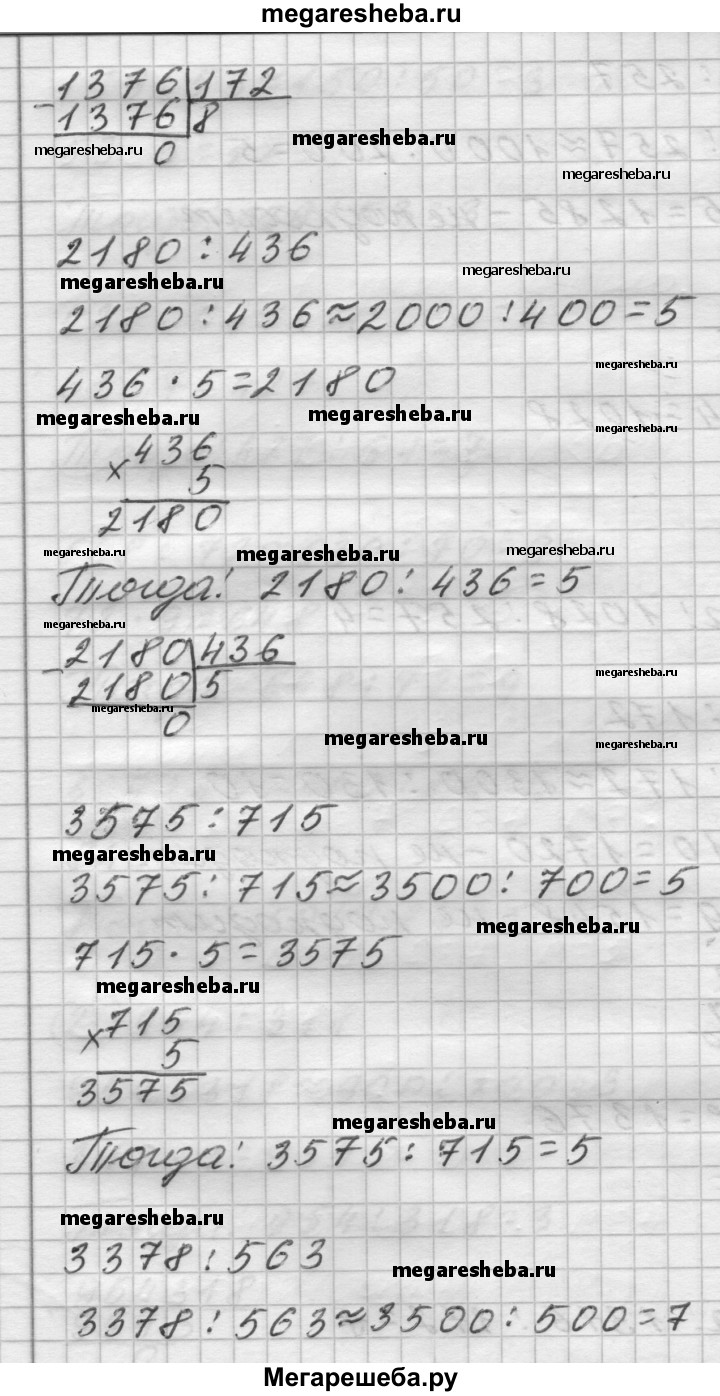 megaresheba.ru
1376|172
-1376|8
megaresheba.ru
megaresheba.ru
0
megaresheba.ru
2180:436
megaresheba.ru
megaresheba.ru
2180:436≈2000:400=5
megaresheba.ru
436·5=2180
megaresheba.ru
megaresheba.ru
megaresheba.ru
×436
5
2180
megaresheba.ru
megaresheba.ru
megaresheba.ru
Тогда: 2180:436=5
megaresheba.ru
-2180|436
2180|5
megaresheba.ru
megaresheba.ru
0
megaresheba.ru
megaresheba.ru
3575:715
megaresheba.ru
3575:715≈3500:700=5
megaresheba.ru
715·5=3575
megaresheba.ru
×715
5
3575
megaresheba.ru
Тогда: 3575:715=5
megaresheba.ru
3378:563
megaresheba.ru
3378:563≈3500:500=7
Мегарешеба.ру